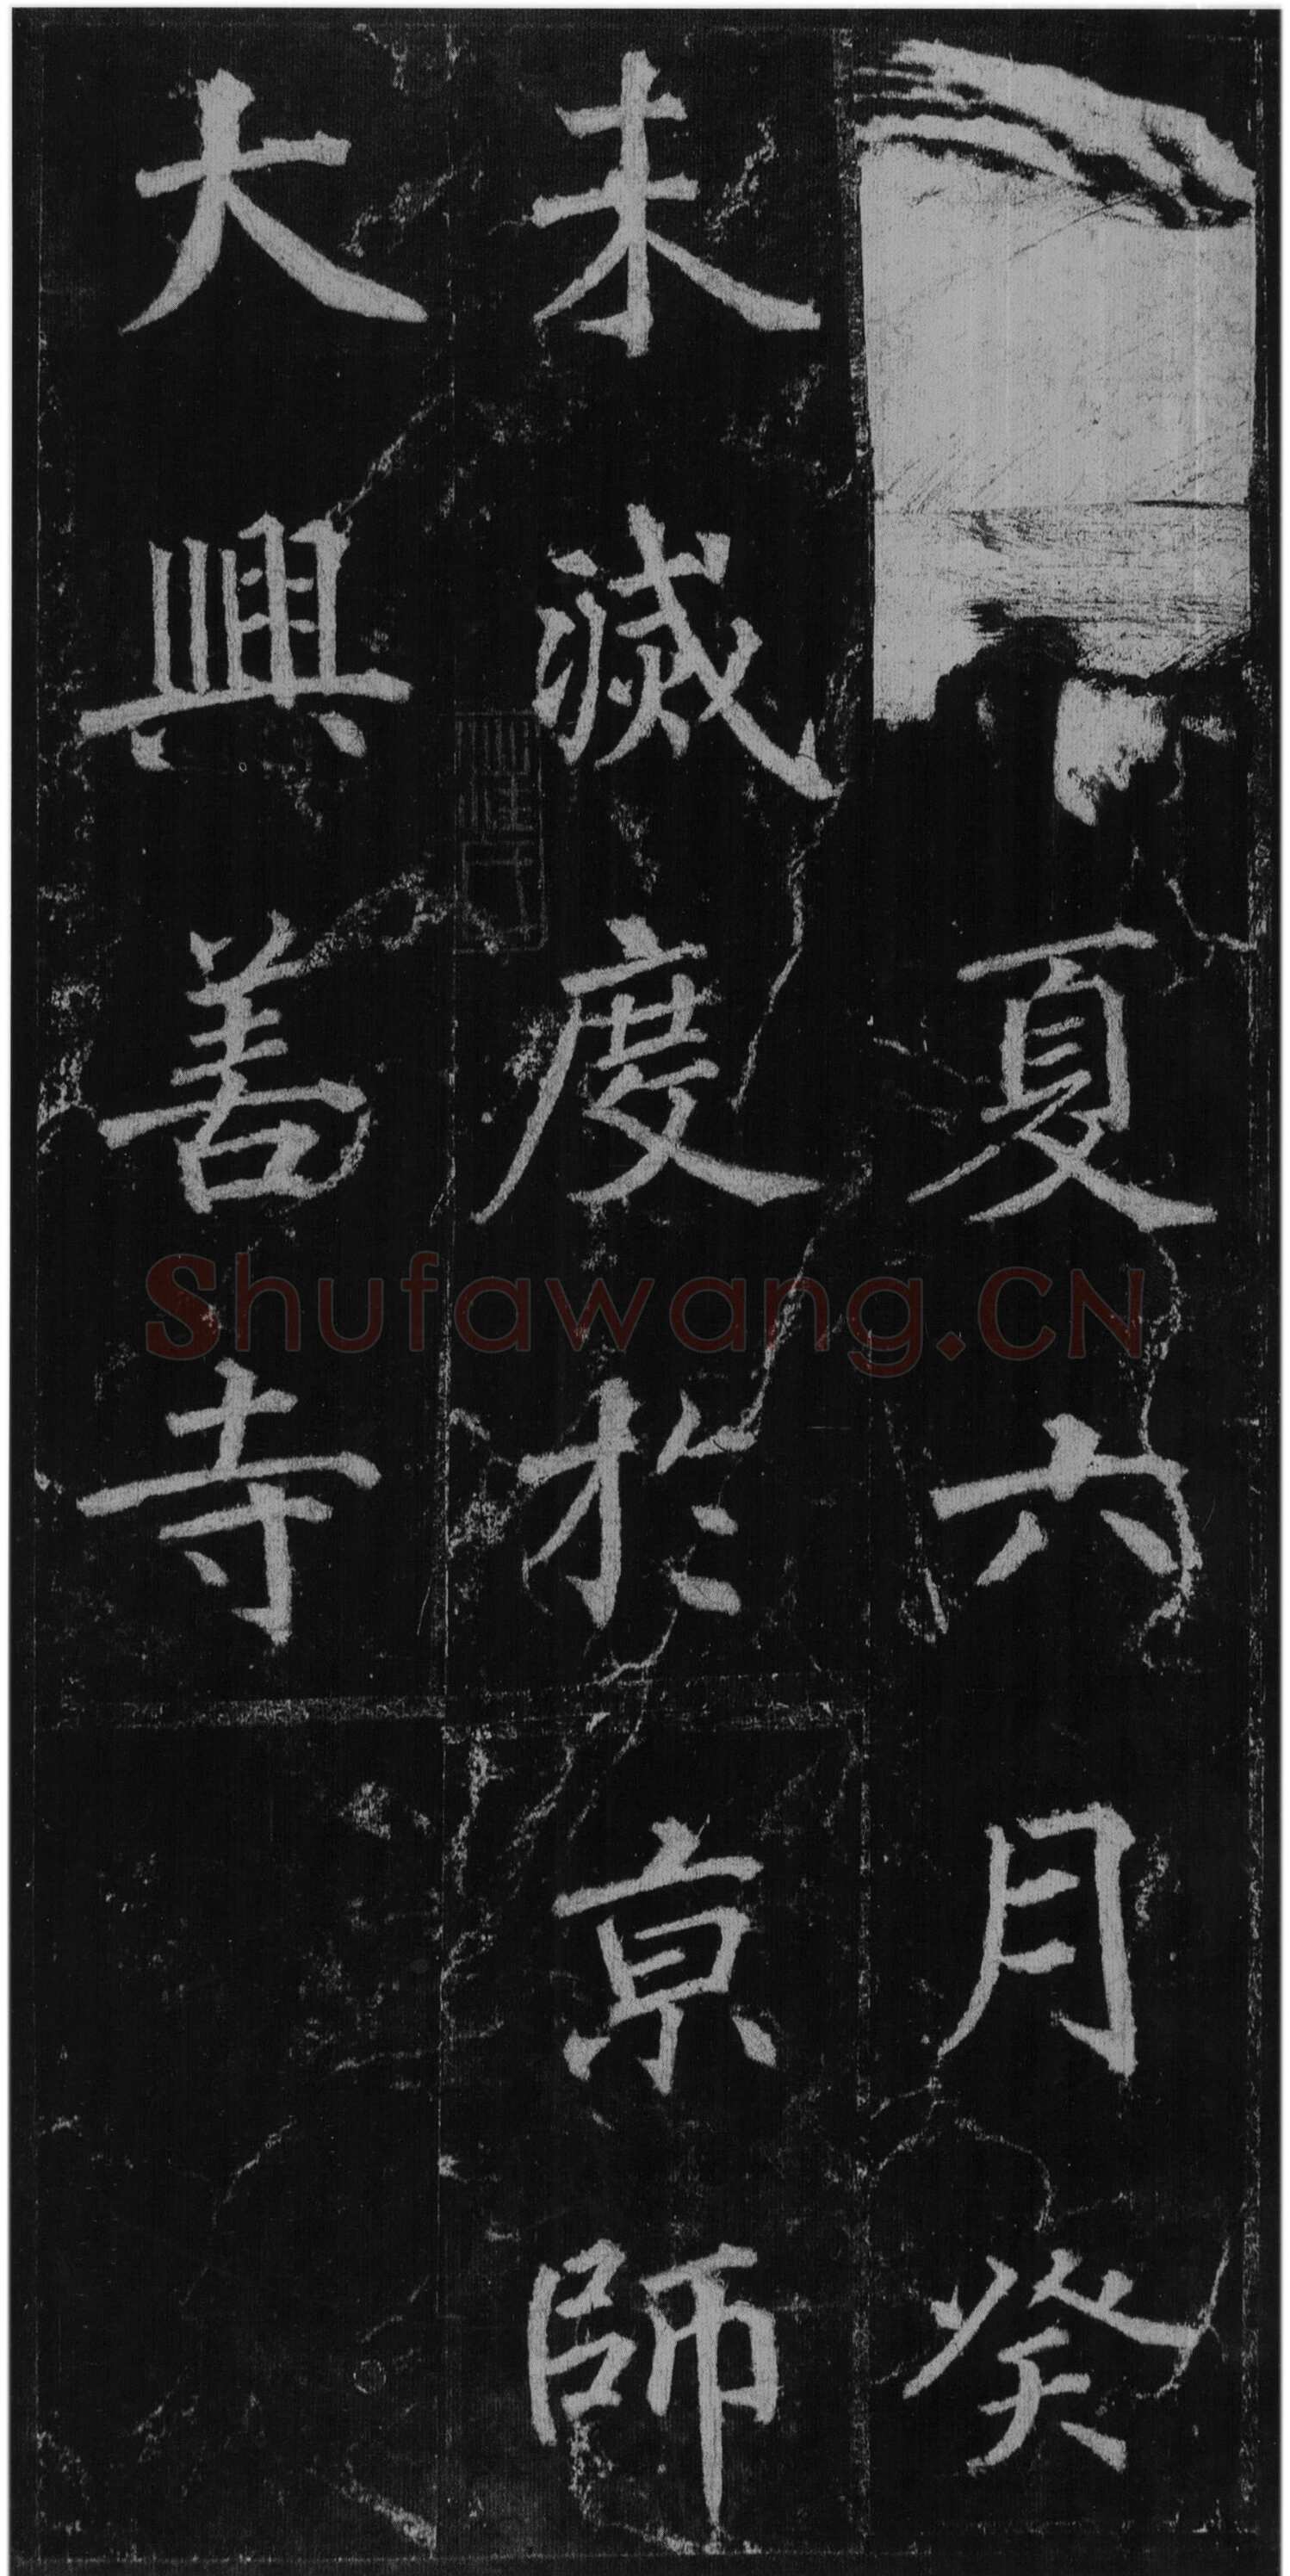 夏六月癸
未滅度於京師
大興善寺
Shufawang.CN